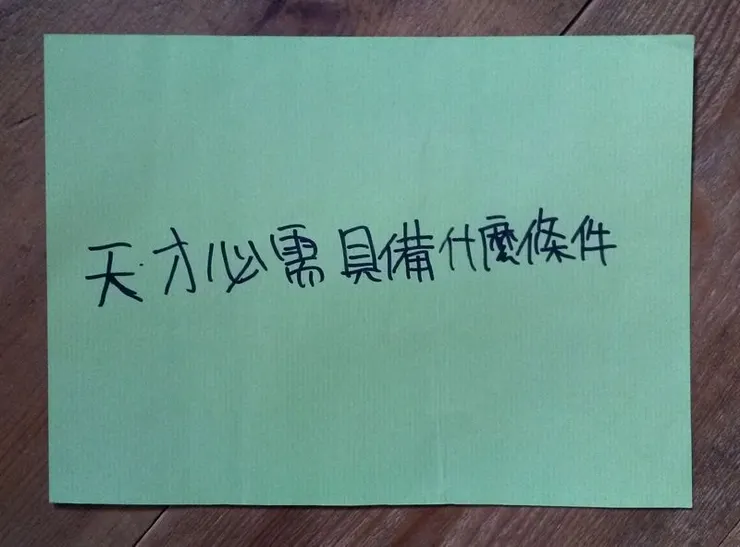 天才必需具備什麼條件